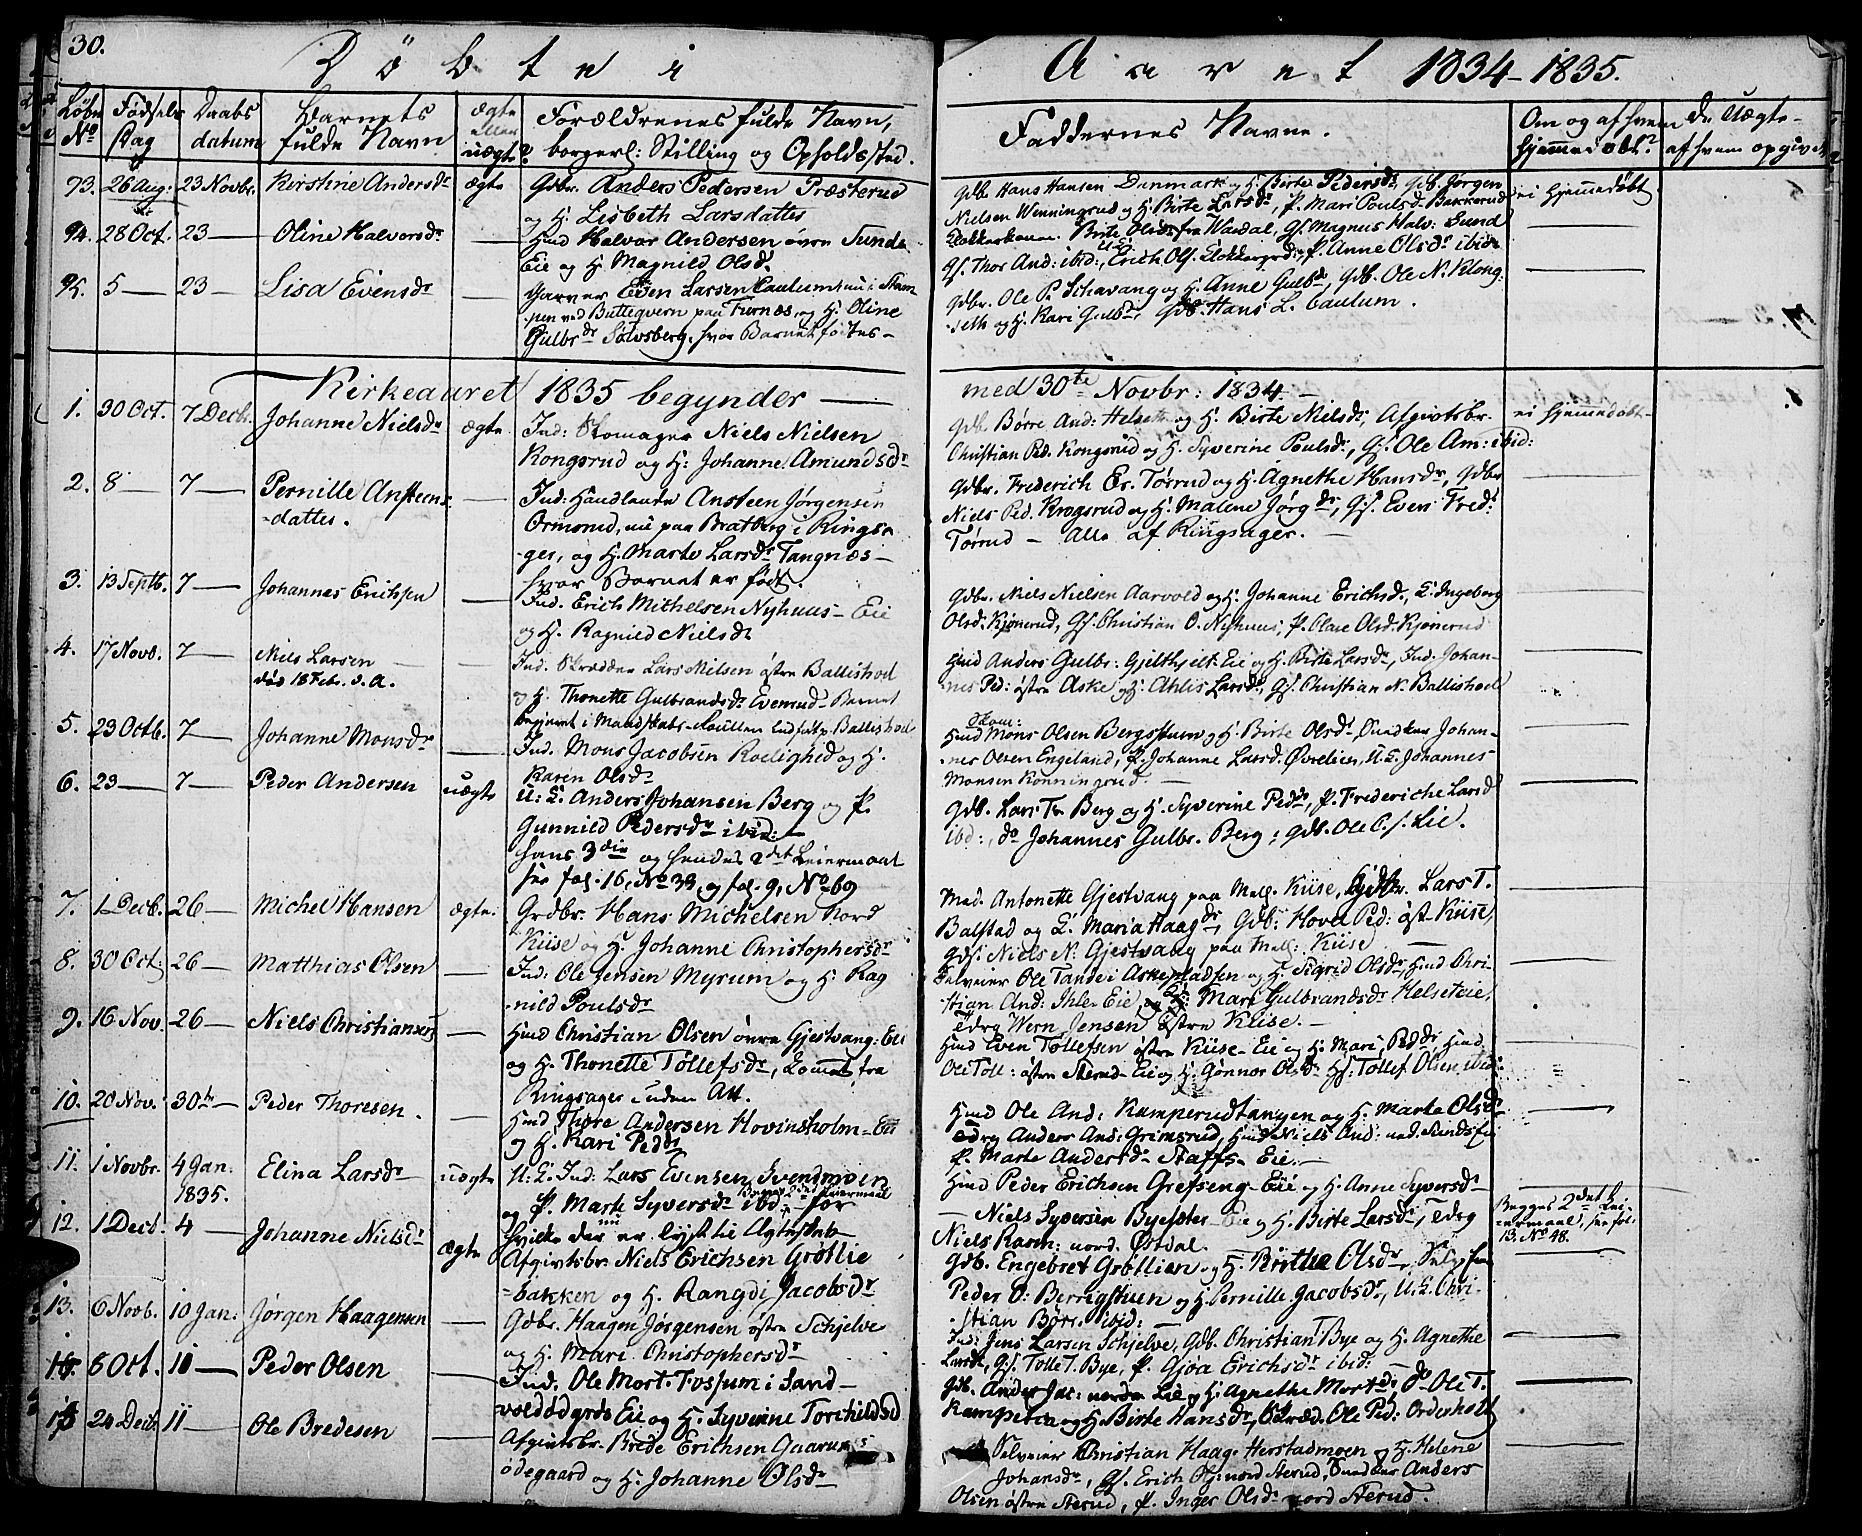 30.
Döbte i Aaret 1834-1835.
Löbe No | Födsels Dag | Daabs datum | Barnets fulde Navn | ægte eller uægte? | Forældrenes fulde Navn, borgerl: Stilling og Opholdssted. | Faddernes Navne. | Om og af hvem hjemmedöbt? | de Uægte- af hvem opgivet
93. 26 Aug: 23 Novbr. Kirstine Andersdr ægte Gdbr. Anders Pedersen Præsterud
og H. Lisbeth Larsdatter
Gdb. Hans Hansen Danmark og H. Birte Pedersdr, Gdb. Jørgen
Nielsen Wenningrud og H. Birte Larsdr, P. Mari Poulsd. Bakkerud
ei hjemmedöbt.
94. 28 Oct. 23 — Oline Halvorsdr — Huusmd Halvor Andersen övre Sunde
Eie og H. Magnild Olsdr.
Klokkerhuusm. Birte Olsdr fra Wardal, Gs. Magnus Halv: Sund
Gs. Thor And: ibid:, Erich Ols. Klokkergrd:, P. Anne Olsdr ibid:
95. 5 — 23 — Lisa Evensdr — Garver Even Larsen Caulum, nu i Stam-
pen ved Butteqvern paa Furnæs, og H. Oline
Gulbrdr Sølvsberg, hvor Barnet födtes —
Gdbr. Ole P. Schavang og H. Anne Gulbdr, Gdb. Ole N. Klong-
seth og H. Kari Gulbdr, Gdb. Hans L. Caulum.
Kirkeaaret 1835 begynder — med 30te Novbr: 1834. —
1. 30 Oct. 7 Decb. Johanne Nielsdr ægte. Ind: Skomager Niels Nielsen
Kongsrud og H: Johanne Amundsdr
Gdb. Børre And: Helseth og H. Birte Nielsdr, Afgivtsbr.
Christian Ped. Kongsrud og H. Syverine Poulsdr, Gs. Ole Am: ibid:
ei hjemmedöbt —
2. 8 — 7 — Pernille Ansteens-
-datter. — Ind: Handlende Ansteen Jørgensen
Ormsrud, nu paa Bratberg i Ringsa-
ger, og H. Marte Larsdr Tangnæs —
hvor Barnet er födt.
Gdbr. Frederich Er. Tørrud og H. Agnethe Hansdr, Gdbr
Niels Ped. Krogsrud og H. Malene Jørgdr, Gs. Even Fred:
Tørrud — Alle af Ringsager. —
3. 13 Septb. 7 — Johannes Erichsen — Ind. Erich Michelsen Nyhuus- Eie
og H. Ragnild Nielsdr
Gdbr. Niels Nielsen Aarvold og H. Johanne Erichsd., E. Ingeborg
Olsd. Kjønerud, Gs. Christian O. Nyhuus, P. Olave Olsd. Kjønerud
4. 17 Novb. 7 — Niels Larsen —
död 18 Febr. s. A. Ind. Skrædder Lars Nilsen østre Ballishod
og H. Thonette Gulbrandsdr Evenrud- Barnet
Huusmd Anders Gulbr: Gjelthjelt- Eie og H. Birte Larsdr, Ind. Johan-
nes Ped: østre Aske og H. Ahlis Larsdr, Gs. Christian N. Ballishod
5. 23 Octb. 7 — Johanne Monsdr — Ind. Mons Jacobsen Roelighed og H.
Karen Olsdr
Huusmd Mons Olsen Bergshuus og H. Birte Olsdr, Snedker Johan-
nes Olsen Engeland, P. Johanne Larsd. Øvrelien, U.E. Johannes
Monsen Konningsrud. —
6. 23 — 7 — Peder Andersen uægte U: E. Anders Johansen Berg og P.
Gunnild Pedersdr ibid: —
hans 3die og hendes 2det Leiermaal
see fol. 16, No 33, og fol. 9, No 69
Gdb. Lars Tr. Berg og H. Syverine Peddr, P. Frederiche Larsd
ibid:, do Johannes Gulbr. Berg, Gdb. Ole C. s. Lie.
7. 1 Decb. 26 — Michel Hansen ægte. Grdbr. Hans Michelsen Nord
Kiise og H. Johanne Christophersdr
Mad. Antonette Gjestvang paa Mell. Kiise, Gjdbr. Lars T.
Balstad og E. Maria Haagdr, Gdb. Hovel Ped: øst- Kiise,
Gds. Niels N. Gjestvang paa Mell: Kiise —
8. 30 Oct: 26 — Matthias Olsen — Ind: Ole Jensen Myrum og H. Rag
nild Poulsdr
Selveier Ole Tande i Askepladsen og H. Sigrid Olsdr, Huusmd Chri-
stian And: Ihle- Eie, og H: Mari Gulbrandsdr Helseteie,
Edrg Wern Jensen Østre Kiise. —
9. 16 Nov. 26 — Niels Christiansen — Huusmd Christian Olsen övre Gjestvang: Eie
og H. Thonette Tollefsdr, kommet fra
Ringsager uden Att.
Huusmd Even Tollefsen østre Kiise- Eie og H. Mari Peddr, Huusmd
Ole Toll: østre Sterud- Eie og H. Gonnor Olsdr Gs: Tollef Olsen ibid:
10. 20 Nov. 30te — Peder Thoresen. — Huusmd Thore Andersen Hovinsholm- Eie
og H. Kari Peddr
Huusmd Ole And: Kamperudtangen og H. Marte Olsdr
Edrg Anders And: Grimsrud, Huusmd Niels And: ned. Sundsfei
P. Marte Andersdr Staffs- Eie. —
11. 1 Novbr. 4 Jan:
1835. Elina Larsdr — uægte U: E. Ind: Lars Evensen Svendmoen
og P. Marte Syversdr ibid: — for
hvilke der nu er lyst til Ægteskab
Huusmd Peder Erichsen Grefseng- Eie og H. Anne Syversdr
— Niels Syversen Byesæter- Eie og H. Birte Larsdr, Edrg
Niels Rasm: nord. Østdal.
Begges 2det Lei-
ermaal, see fol.
13. No 48.
12. 1 Decb. 4 — Johanne Nielsdr ægte Afgivtsbr. Niels Erichsen Grøtlie
-bakken og H. Rangdi Jacobsdr
Gdb. Engebret Grøtlien og H. Birthe Olsdr,
Peder O: Berregstuen og H. Pernille Jacobsdr, U.E. Chri-
stian Börr. ibid: —
13. 6 Novb. 10 Jan: Jørgen Haagensen — Gdbr. Haagen Jørgensen østre Schjelve
og H. Mari Christophersdr
Ind: Jens Larsen Schjelve, Gdb. Christian Bye og H. Agnethe
Larsdr, Gs. Tolle T. Bye, P. Gjøa Erichsdr ibid: —
8 Oct. 10 — Peder Olsen — Ind. Ole Mort. Fossum i Sand-
voldödgrds Eie og H. Syverine Torchildsd
Gdb. Anders Jac: nordre Lie og H. Agnethe Mortdr, do Ole T.
Kamperud og H. Birte Hansdr, Skræd. Ole Ped: Orderholt
24 Decb. 11 — Ole Bredesen — Afgivtsbr. Brede Erichsen Gaarus
ödegaard og H: Johanne Olsdr —
Selveier Christian Haag: Herstadmoen og H. Helene
Johansdr, Gs. Erich Ols: nord Sterud, Snedker Anders
Olsen østre Sterud, P. Inger Olsdr nord Sterud.